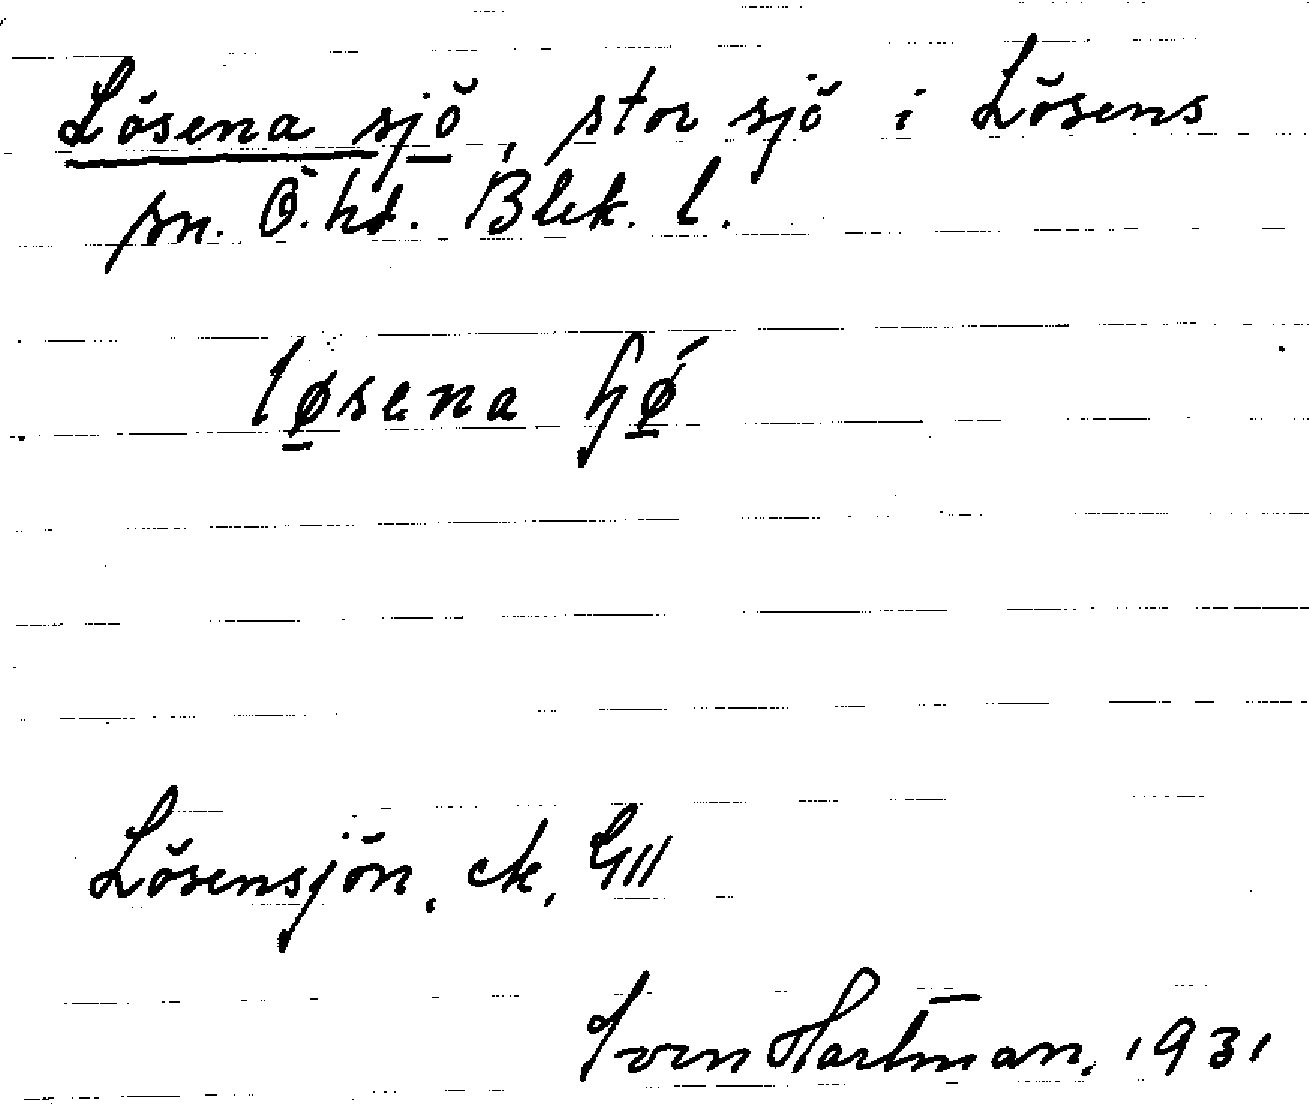 Lösena sjö, stor sjö i Lösens
sn. Ö. hd. Blek. l.
løsena
Lösensjön, ek,
Sven Hartman, 1931